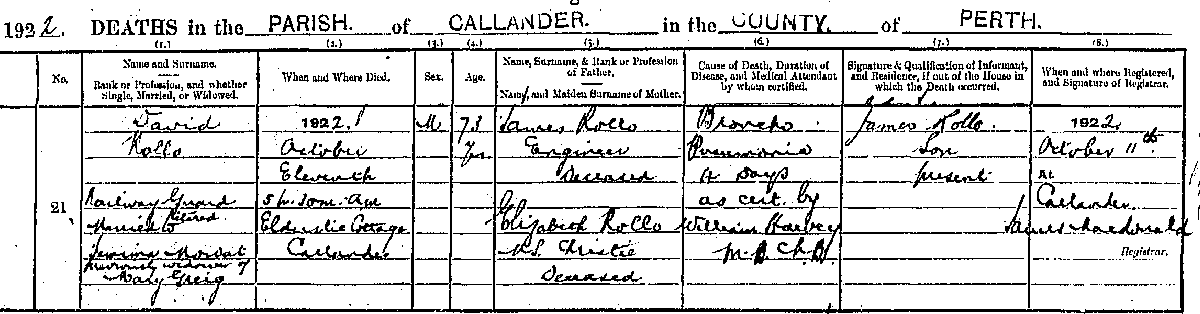 1922. DEATHS in the PARISH. of CALLANDER. in the COUNTY. of PERTH.
(1.) (2.) (3.) (4.) (5.) (6.) (7.) (8.)
No.
Name and Surname.
Rank or Profession, and whether
Single, Married, or Widowed.
When and Where Died.
Sex.
Age.
Name, Surname, & Rank or Profession
of Father.
Name, and Maiden Surname of Mother.
Cause of Death, Duration of
Disease, and Medical Attendant
by whom certified.
Signature & Qualification of Informant,
and Residence, if out of the House in
which the Death occurred.
When and where Registered,
and Signature of Registrar.
21
David
Rollo
Railway Guard
Retired
Married to
Jemima Mowat
previously widower of
Mary Greig
1922.
October
Eleventh
5h. 30m. AM
Elderslie Cottage
Callander
M
73
Yrs.
James Rollo
Engineer
Deceased
Elizabeth Rollo
M.S. Christie
Deceased
Broncho
Pneumonia
4 Days
as cert. by
William Harvey
M.B. Ch.B.
James Rollo.
Son
present
1922.
October 11th.
At
Callander.
James Macdonald
Registrar.